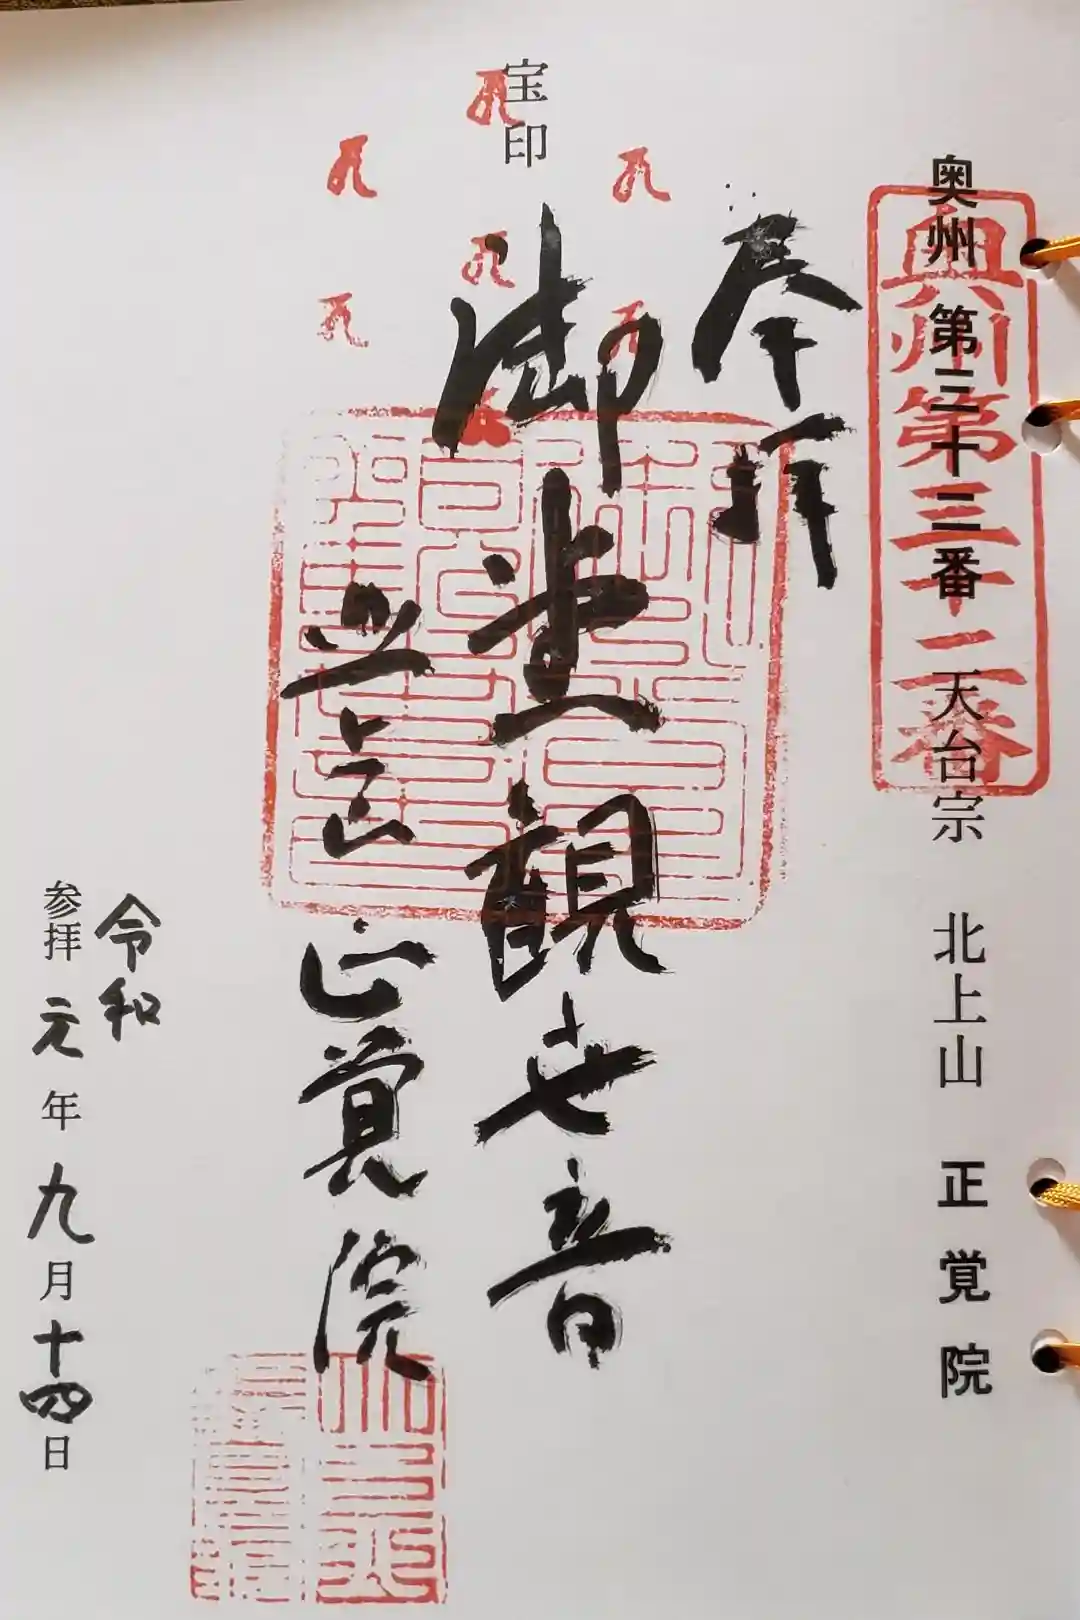 奥州 第三十二番 天台宗 北上山 正覚院
奥州第三十二番
奉拝
宝印
御堂観世音
北上山 正覚院
令和
参拝 元年九月十四日